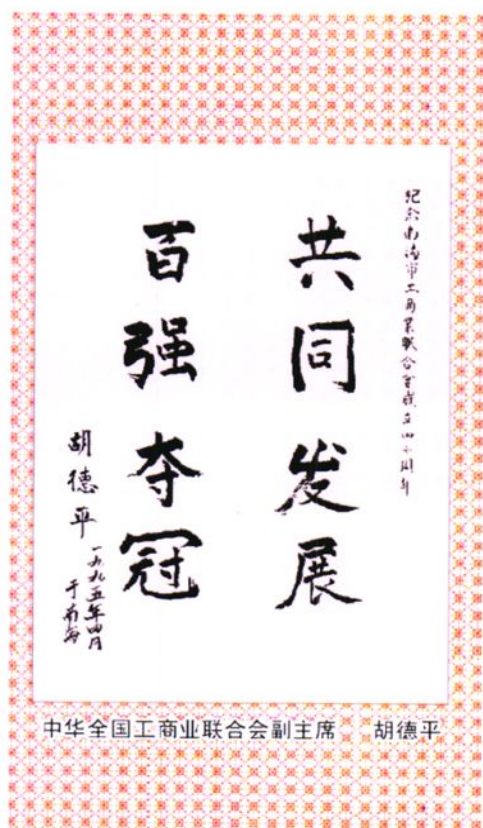 纪念南海市工商业联合会成立四十周年
共同发展
百强夺冠
胡德平
一九九五年四月
于南海
中华全国工商业联合会副主席 胡德平